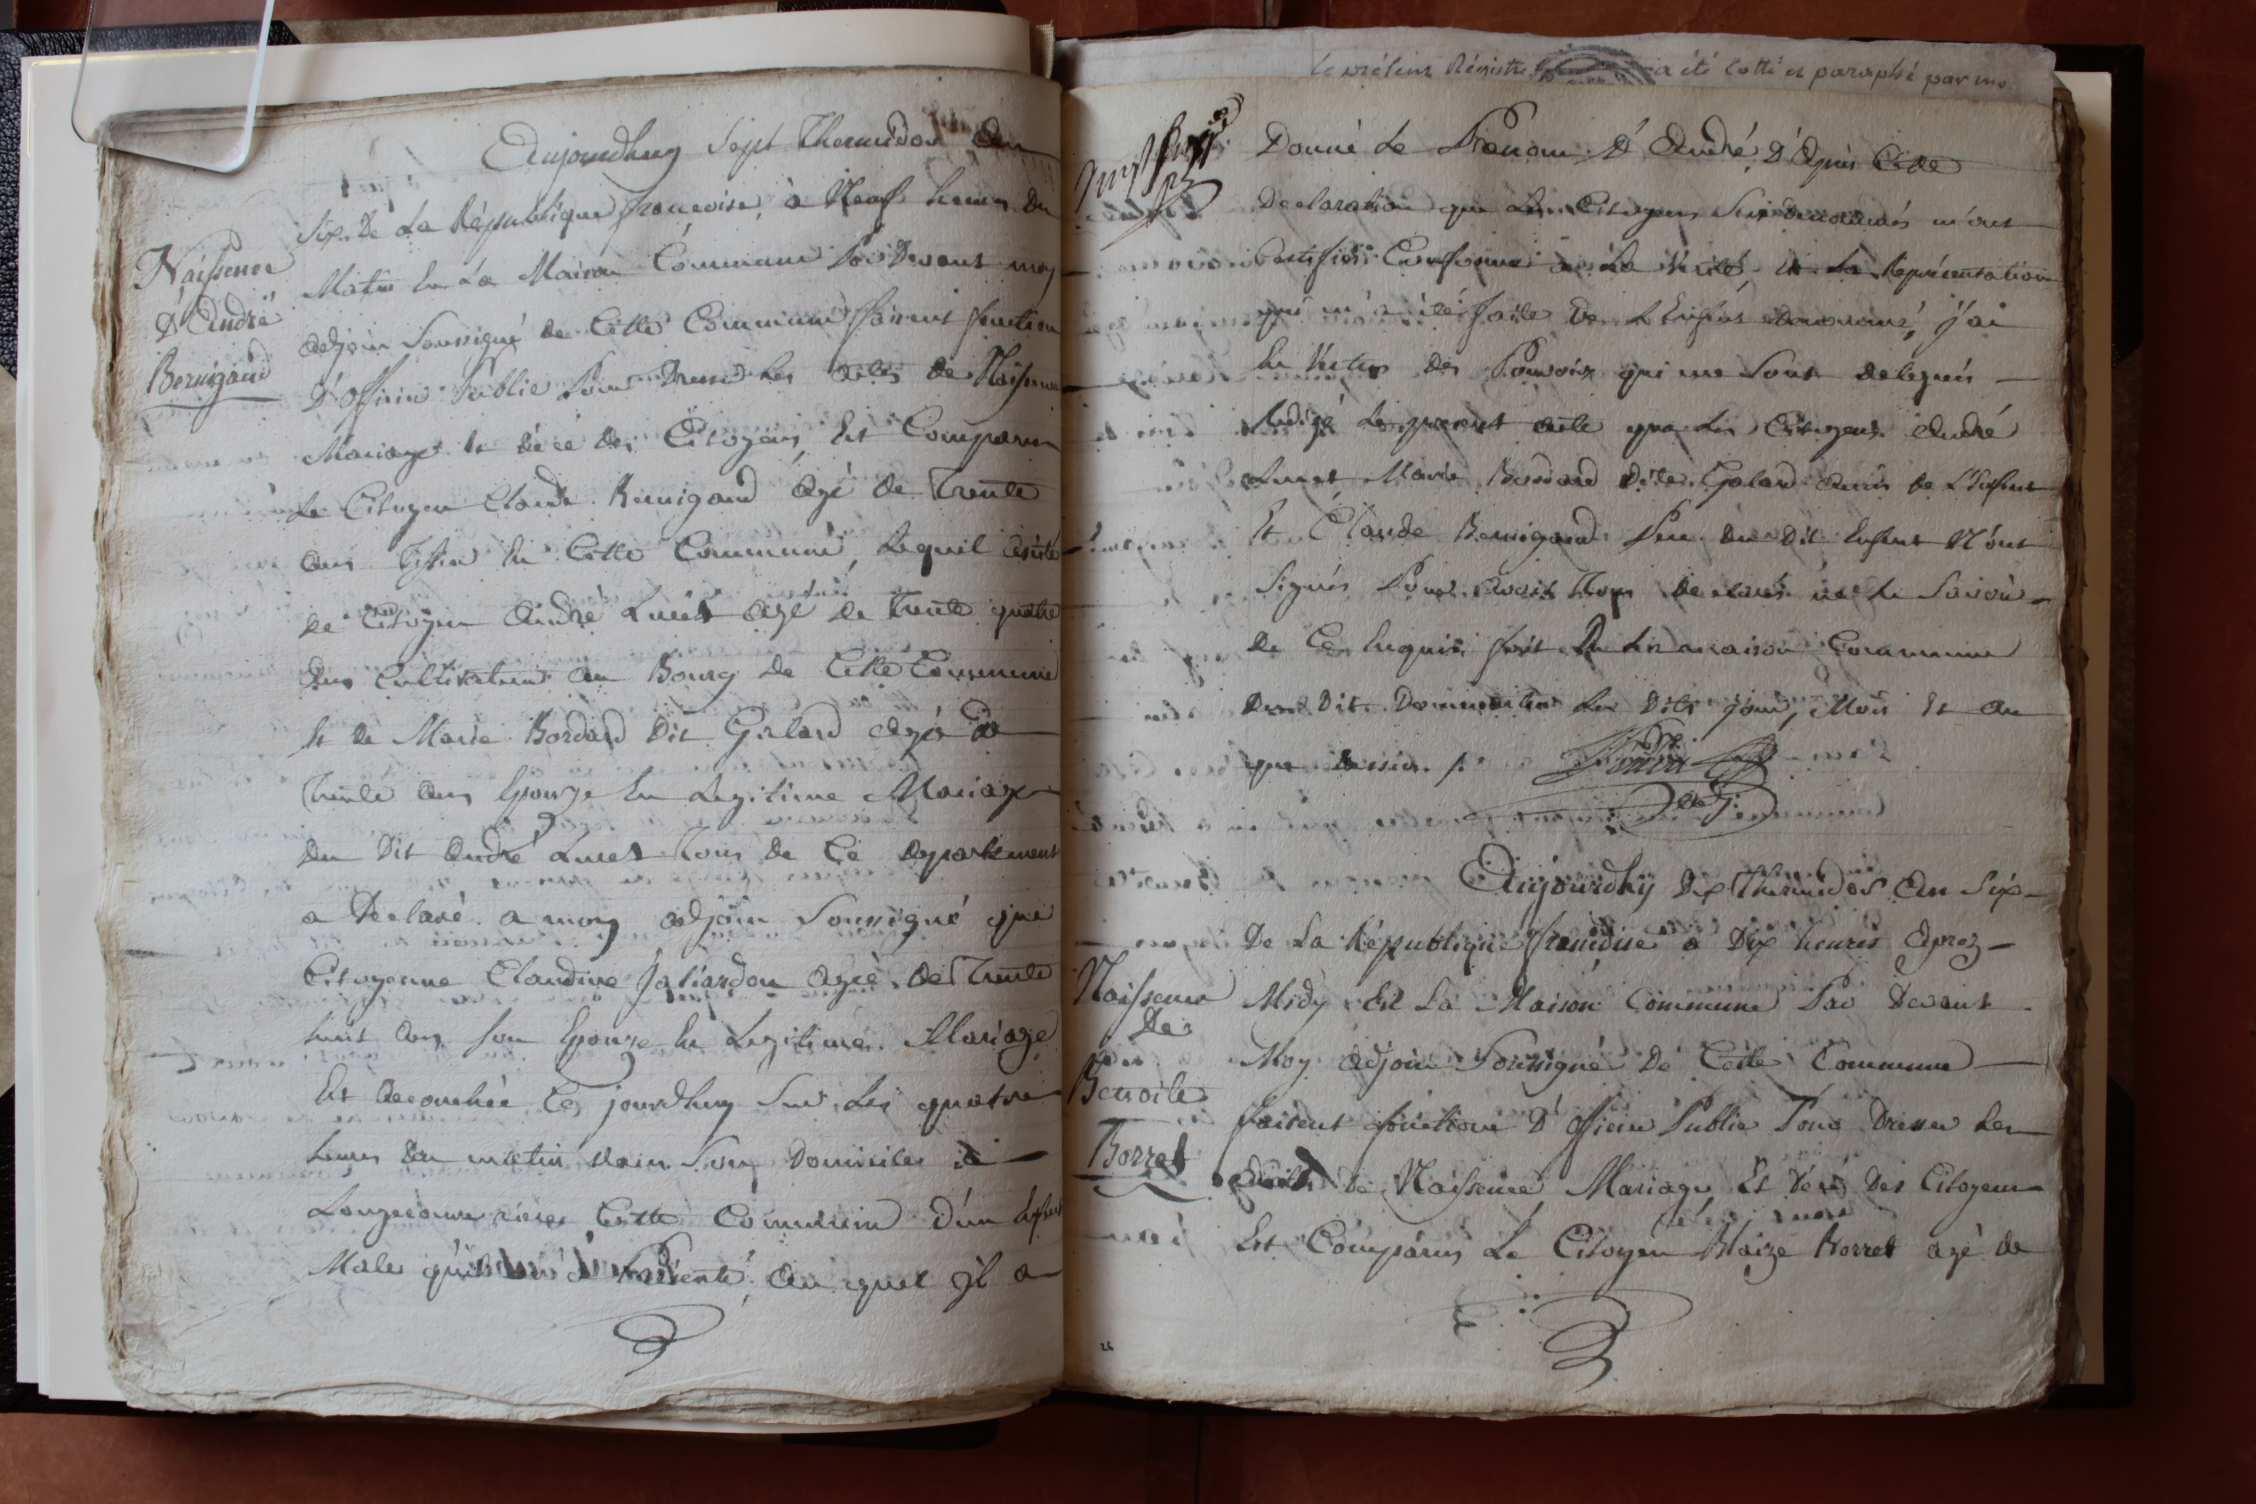 Naissence
D'André
Bernigaud
Aujourdhuy Sept Thermidor An
Six De La République francoise, à Neuf heures Du
Matin En La Maison Commune Par Devant moy
adjoin Soussigné de Cette Commune faisent fonction
D'officier Public Pour Dresser Les actes de Naissence
Mariage et décé des Citoyens, Est Comparu
Le Citoyen Claude Bernigaud Agé de Trente
ans Tissier En Cette Commune, Lequel assisté
de Citoyen André Lucet agé de trente quatre
Ans Cultivateur Au Bourg de Cette Commune
Et de Marie Bordard Dit Galard agé de
Trente Ans Epouze En Legitime Mariage
du Dit André Lucet Tous De Ce département
a Declaré a moy adjoin Soussigné que
Citoyenne Claudine Jatiardon agée de Trente
huit ans Son Epouze En Legitime Mariage
Est acouchée Ce jourdhuy Sur Les quatre
heures Du matin dans Son Domicile à
rière Cette Commune d'un Enfent
Male qu'il Présenté, Au quel Jl a
Le présent Régistre a été Cotté et paraphé par
Donné Le Prenom D'André, D'Après Cette
Declaration que Les Citoyens Susdenommés m'ont
Certifiés Conforme à La Vérité, et La Représentation
qui m'a été faite De L'Enfent denommé, J'ai
En Vertus des Pouvoirs qui me Sont delegués
Redigé Le present acte que Les Citoyens André
Lucet Marie Bordard Dite Galard Amis de L'Enfent
Et Claude Bernigaud Pere du Dit Enfent N'ont
Signés Pour avoir Tous declarés ne Le Savoir
de Ce Enquis, fait En La maison Commune
Les Dits Jour, Mois Et An
que dessus /.
adj.
Naissence
De
Benoite
Borret
Aujourdhuy Dix Thermidor An Six
De La République francoise a Dix heures Aprez
Midy En La Maison Commune Par Devant
Moy adjoin Soussigné De Cette Commune
faisent fonction D'officier Public Pour Dresser Les
actes de Naissence, Mariage Et Décé Des Citoyens
Est Comparus Le Citoyen Blaize Borret agé de